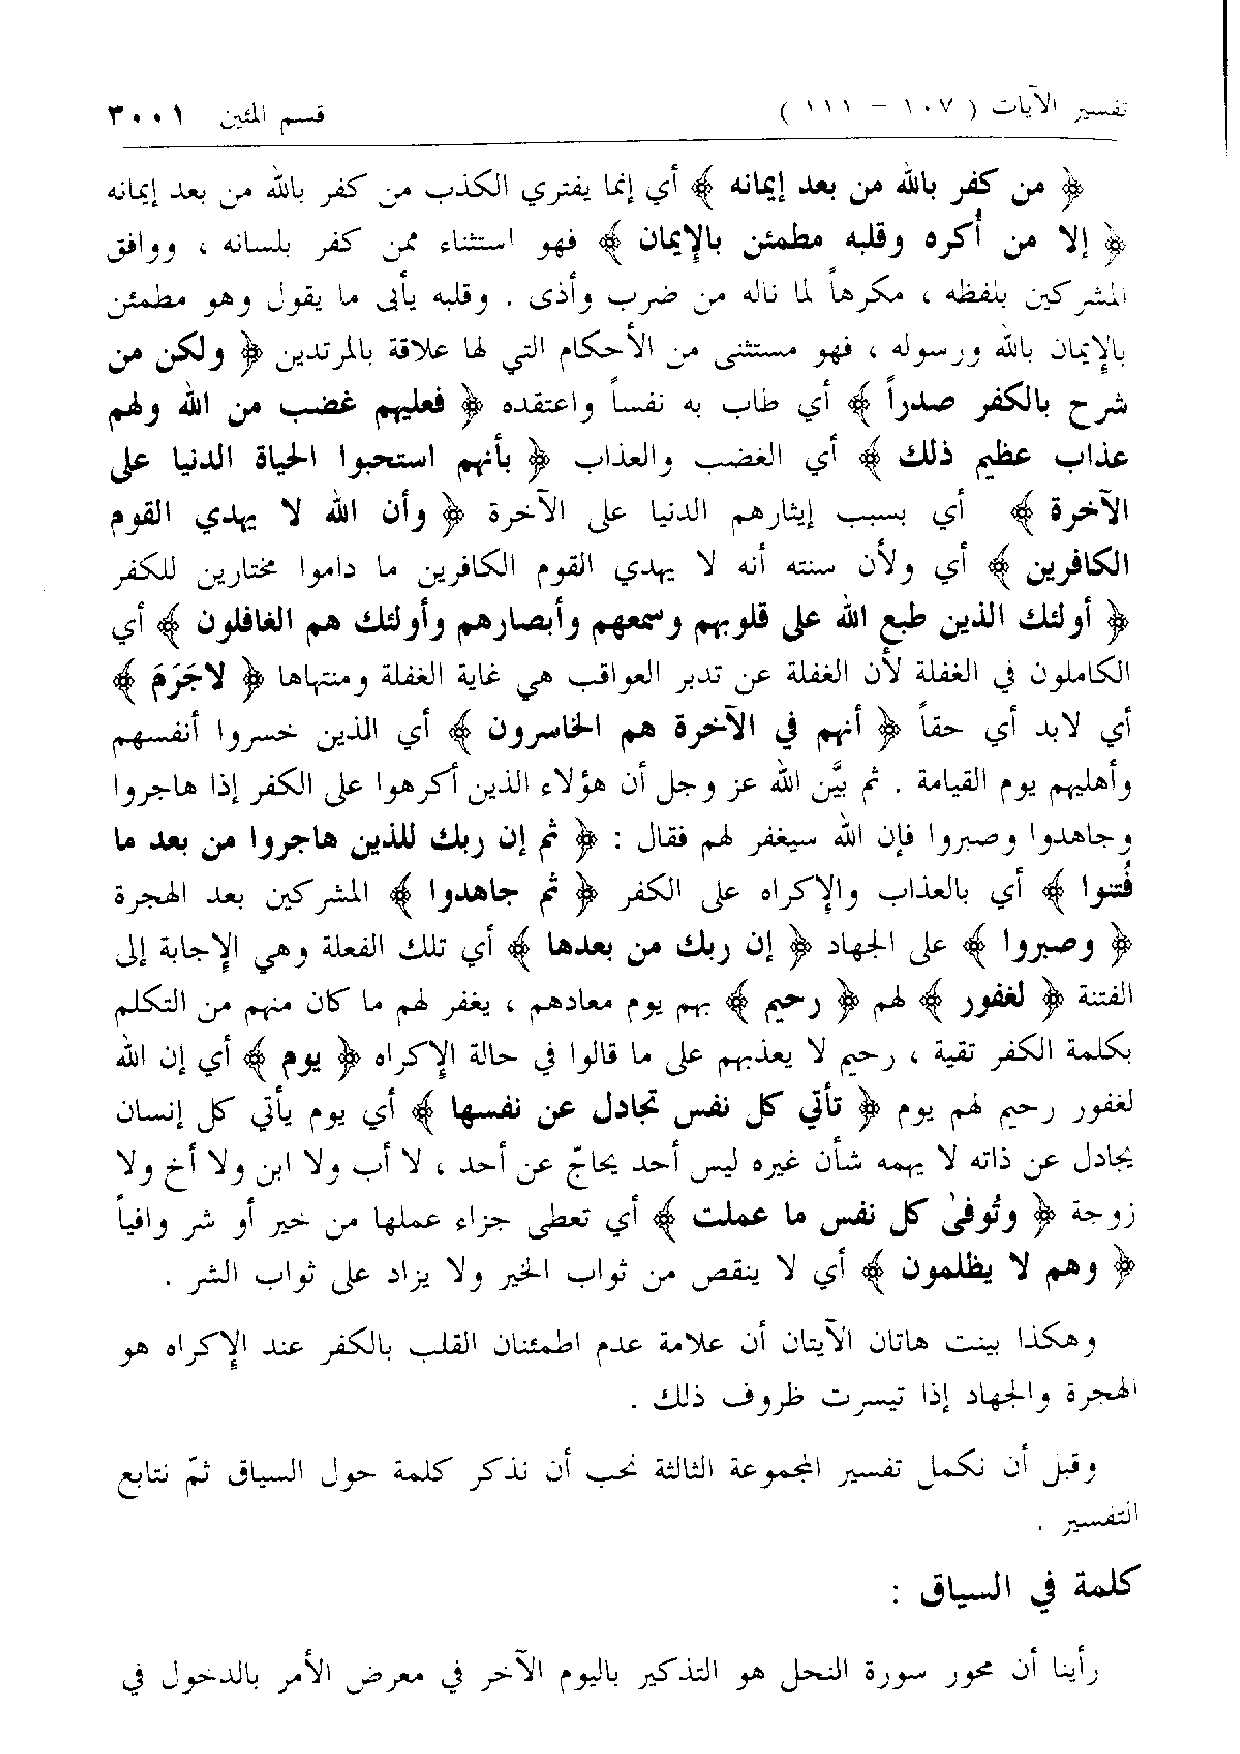 تفسير الآيات ( ١٠٧ – ١١١ ) قسم المئين ٣٠٠١
﴿ من كفر بالله من بعد إيمانه ﴾ أي إنما يفتري الكذب من كفر بالله من بعد إيمانه
﴿ إلا من أُكره وقلبه مطمئن بالإيمان ﴾ فهو استثناء ممن كفر بلسانه ، ووافق
المشركين بلفظه ، مكرهاً لما ناله من ضرب وأذى . وقلبه يأبى ما يقول وهو مطمئن
بالإيمان بالله ورسوله ، فهو مستثنى من الأحكام التي لها علاقة بالمرتدين ﴿ ولكن من
شرح بالكفر صدراً ﴾ أي طاب به نفساً واعتقده ﴿ فعليهم غضب من الله ولهم
عذاب عظيم ذلك ﴾ أي الغضب والعذاب ﴿ بأنهم استحبوا الحياة الدنيا على
الآخرة ﴾ أي بسبب إيثارهم الدنيا على الآخرة ﴿ وأن الله لا يهدي القوم
الكافرين ﴾ أي ولأن سنته أنه لا يهدي القوم الكافرين ما داموا مختارين للكفر
﴿ أولئك الذين طبع الله على قلوبهم وسمعهم وأبصارهم وأولئك هم الغافلون ﴾ أي
الكاملون في الغفلة لأن الغفلة عن تدبر العواقب هي غاية الغفلة ومنتهاها ﴿ لاجَرَمَ ﴾
أي لابد أي حقاً ﴿ أنهم في الآخرة هم الخاسرون ﴾ أي الذين خسروا أنفسهم
وأهليهم يوم القيامة . ثم بيَّن الله عز وجل أن هؤلاء الذين أكرهوا على الكفر إذا هاجروا
وجاهدوا وصبروا فإن الله سيغفر لهم فقال : ﴿ ثم إن ربك للذين هاجروا من بعد ما
فُتنوا ﴾ أي بالعذاب والإكراه على الكفر ﴿ ثم جاهدوا ﴾ المشركين بعد الهجرة
﴿ وصبروا ﴾ على الجهاد ﴿ إن ربك من بعدها ﴾ أي تلك الفعلة وهي الإجابة إلى
الفتنة ﴿ لغفور ﴾ لهم ﴿ رحيم ﴾ بهم يوم معادهم ، يغفر لهم ما كان منهم من التكلم
بكلمة الكفر تقية ، رحيم لا يعذبهم على ما قالوا في حالة الإكراه ﴿ يوم ﴾ أي إن الله
لغفور رحيم لهم يوم ﴿ تأتي كل نفس تجادل عن نفسها ﴾ أي يوم يأتي كل إنسان
يجادل عن ذاته لا يهمه شأن غيره ليس أحد يحاجّ عن أحد ، لا أب ولا ابن ولا أخ ولا
زوجة ﴿ وتُوفىٰ كل نفس ما عملت ﴾ أي تعطى جزاء عملها من خير أو شر وافياً
﴿ وهم لا يظلمون ﴾ أي لا ينقص من ثواب الخير ولا يزاد على ثواب الشر .
وهكذا بينت هاتان الآيتان أن علامة عدم اطمئنان القلب بالكفر عند الإكراه هو
الهجرة والجهاد إذا تيسرت ظروف ذلك .
وقبل أن نكمل تفسير المجموعة الثالثة نحب أن نذكر كلمة حول السياق ثمّ نتابع
التفسير .
كلمة في السياق :
رأينا أن محور سورة النحل هو التذكير باليوم الآخر في معرض الأمر بالدخول في